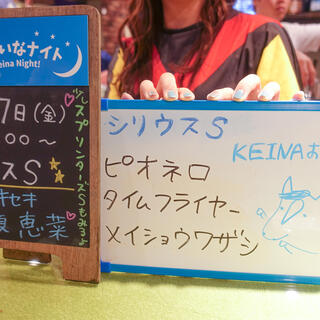 いなナイト
eina Night!
7日(金)
00〜
スS
キセキ
恵菜
少しスプリンターズSもみるよ
シリウスS
KEINAお
ピオネロ
タイムフライヤー
メイショウワザシ